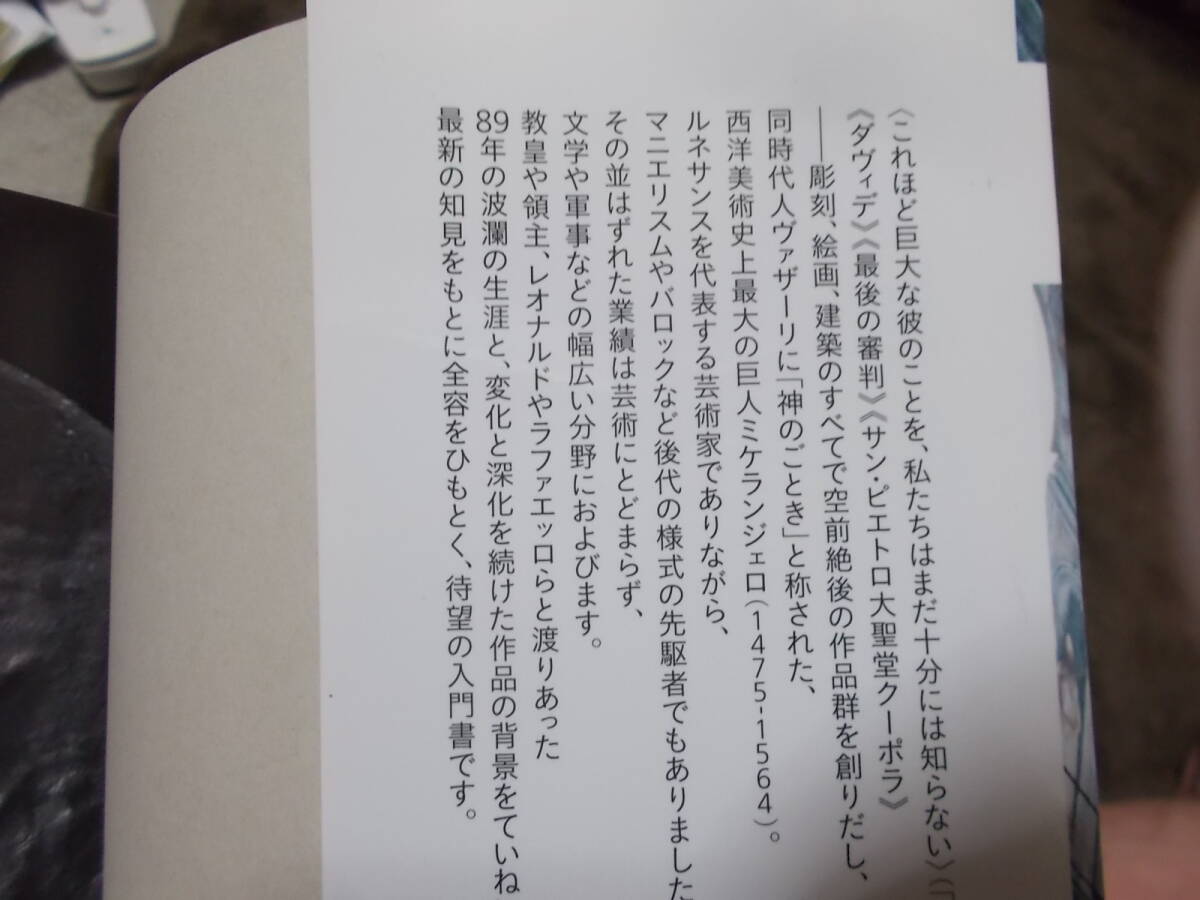 〈これほど巨大な彼のことを、私たちはまだ十分には知らない〉(「
《ダヴィデ》《最後の審判》《サン・ピエトロ大聖堂クーポラ》
――彫刻、絵画、建築のすべてで空前絶後の作品群を創りだし、
同時代人ヴァザーリに「神のごとき」と称された、
西洋美術史上最大の巨人ミケランジェロ(1475-1564)。
ルネサンスを代表する芸術家でありながら、
マニエリスムやバロックなど後代の様式の先駆者でもありました
その並はずれた業績は芸術にとどまらず、
文学や軍事などの幅広い分野におよびます。
教皇や領主、レオナルドやラファエッロらと渡りあった
89年の波瀾の生涯と、変化と深化を続けた作品の背景をていね
最新の知見をもとに全容をひもとく、待望の入門書です。